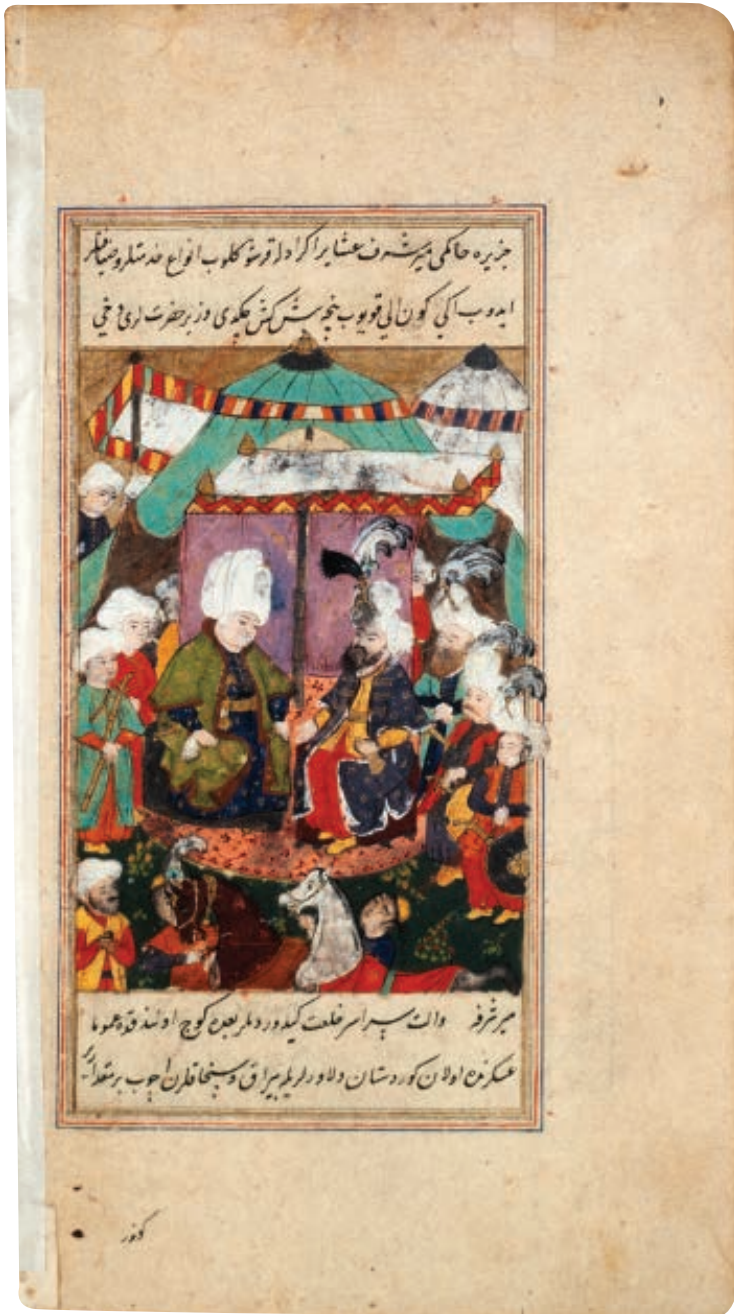 جزیره حاکمی میر شرف عشایر اکراد له قرشو کلوب انواع خدمتلر و ضیافتلر
ایدوب ایکی کون الی قویوب نیجه پیشکش چکدی وزیر حضرتلری دخی
میر شرفه والت سراسر خلعت کیدوردیلر بعده کوچ اولنوب عموما
عسکرده اولان کوردستان دلاورلریله بیراق و سنجاقلرن اچوب بر مقدار